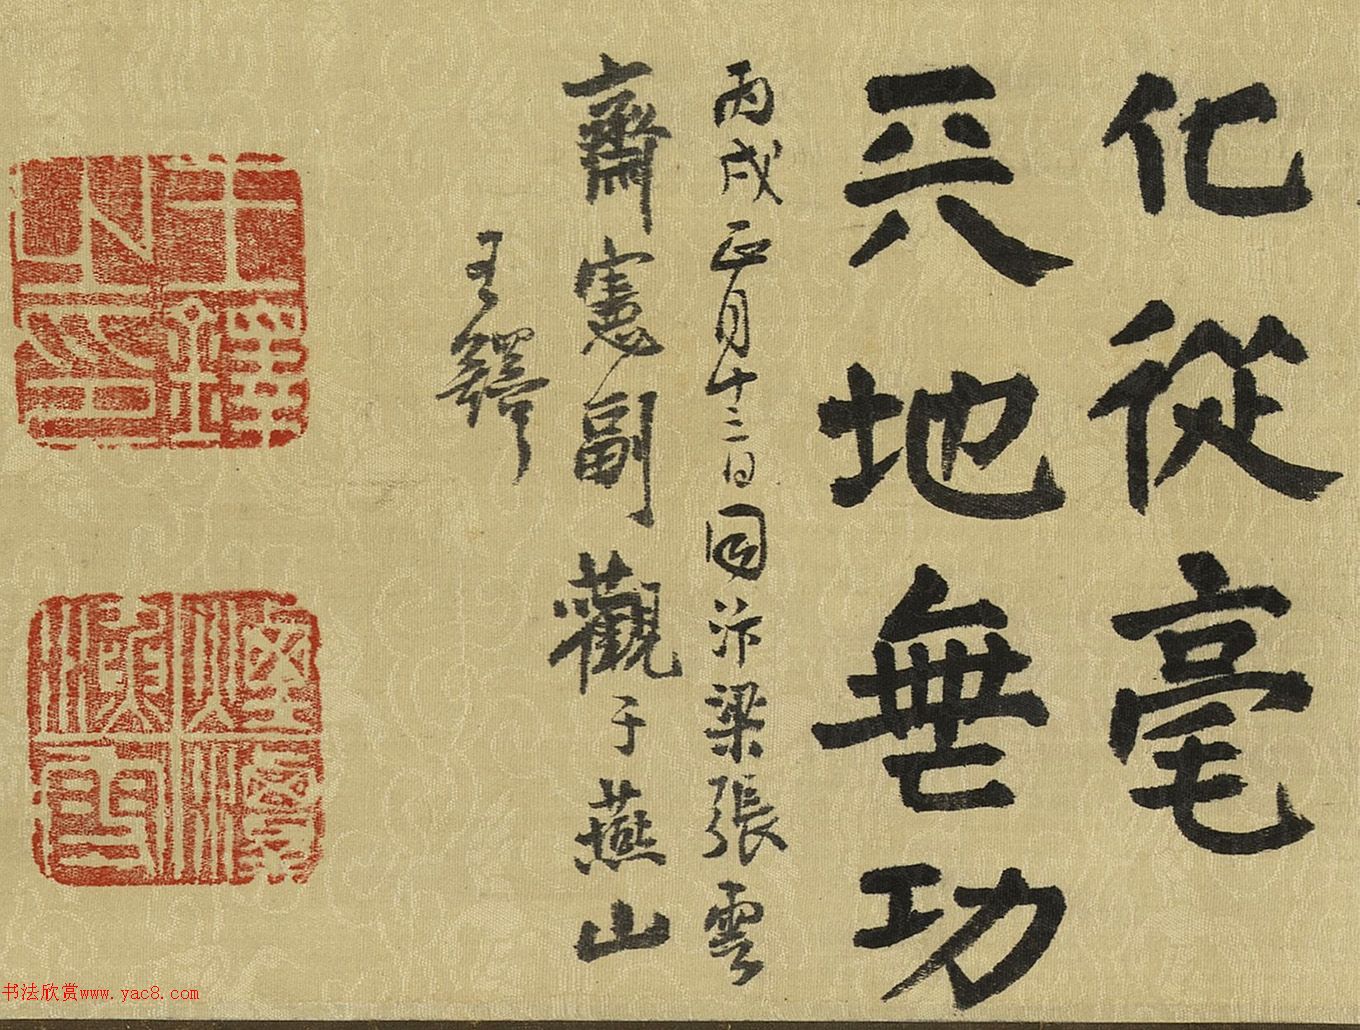 化從毫
兲地無功
丙戌正月十二日同汴梁張雲
齋憲副觀于燕山
王鐸
王鐸之印
书法欣赏www.yac8.com